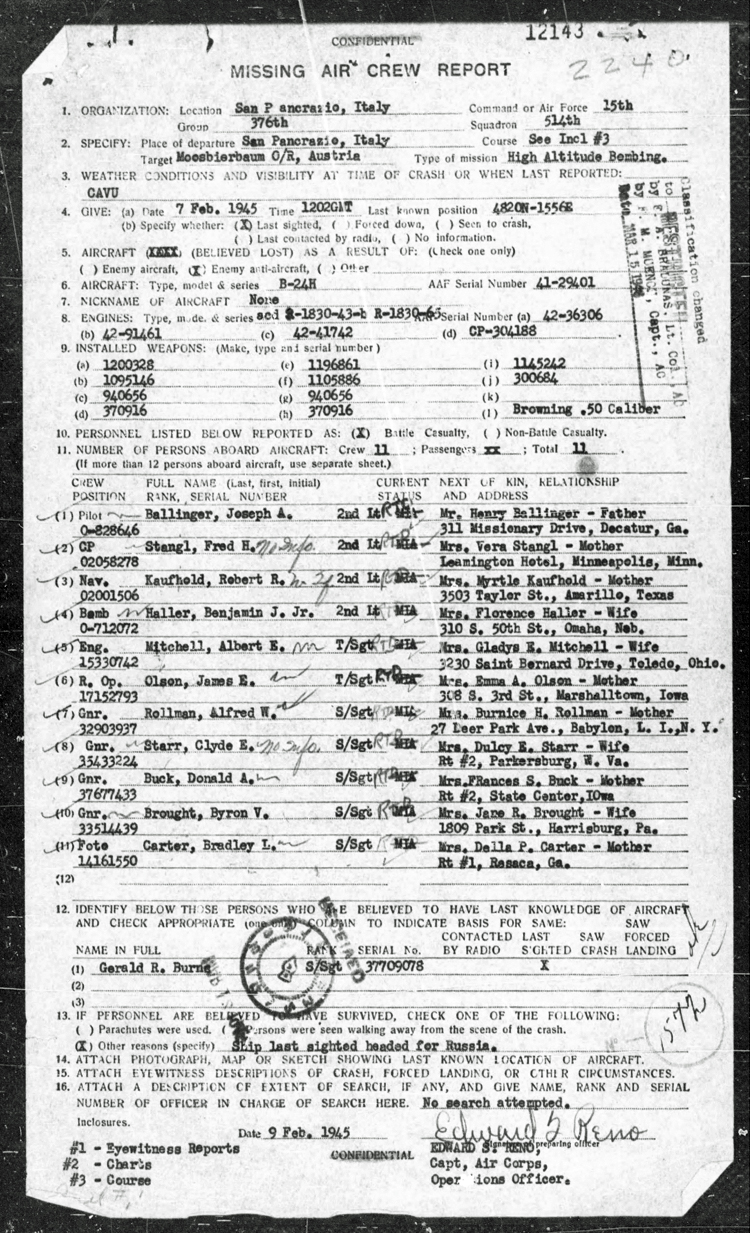 CONFIDENTIAL
12143
2240
MISSING AIR CREW REPORT
1. ORGANIZATION: Location San P ancrazio, Italy Command or Air Force 15th
Group 376th Squadron 514th
2. SPECIFY: Place of departure San Pancrazio, Italy Course See Incl #3
Target Moosbierbaum O/R, Austria Type of mission High Altitude Bombing.
3. WEATHER CONDITIONS AND VISIBILITY AT TIME OF CRASH OR WHEN LAST REPORTED:
CAVU
4. GIVE: (a) Date 7 Feb. 1945 Time 1202GMT Last known position 4820N-1556E
(b) Specify whether: (X) Last sighted, ( ) Forced down, ( ) Seen to crash,
( ) Last contacted by radio, ( ) No information.
5. AIRCRAFT (XXXX) (BELIEVED LOST) AS A RESULT OF: (Check one only)
( ) Enemy aircraft, (X) Enemy anti-aircraft, ( ) Other
6. AIRCRAFT: Type, model & series B-24H AAF Serial Number 41-29401
7. NICKNAME OF AIRCRAFT None
8. ENGINES: Type, mode. & series acd R-1830-43-b R-1830-65 AAF Serial Number (a) 42-36306
(b) 42-91461 (c) 42-41742 (d) CP-304188
9. INSTALLED WEAPONS: (Make, type and serial number)
(a) 1200328 (e) 1196861 (i) 1145242
(b) 1095146 (f) 1105886 (j) 300684
(c) 940656 (g) 940656 (k)
(d) 370916 (h) 370916 (l) Browning .50 Caliber
Classification changed
to
by E. A. BRADUNAS, Lt. Col., AC
by F. M. MUENCH, Capt., AC
Date MAR 15 1946
10. PERSONNEL LISTED BELOW REPORTED AS: (X) Battle Casualty, ( ) Non-Battle Casualty.
11. NUMBER OF PERSONS ABOARD AIRCRAFT: Crew 11 ; Passengers xx ; Total 11
(If more than 12 persons aboard aircraft, use separate sheet.)
CREW FULL NAME (Last, first, initial) CURRENT NEXT OF KIN, RELATIONSHIP
POSITION RANK, SERIAL NUMBER STATUS AND ADDRESS
(1) Pilot Ballinger, Joseph A. 2nd Lt RTD MIA Mr. Henry Ballinger - Father
0-828646 311 Missionary Drive, Decatur, Ga.
(2) CP Stangl, Fred H. no info. 2nd Lt RTD MIA Mrs. Vera Stangl - Mother
02058278 Leamington Hotel, Minneapolis, Minn.
(3) Nav. Kaufhold, Robert R. 2nd Lt RTD MIA Mrs. Myrtle Kaufhold - Mother
02001506 3503 Taylor St., Amarillo, Texas
(4) Bomb Haller, Benjamin J. Jr. 2nd Lt RTD MIA Mrs. Florence Haller - Wife
0-712072 310 S. 50th St., Omaha, Neb.
(5) Eng. Mitchell, Albert E. T/Sgt RTD MIA Mrs. Gladys E. Mitchell - Wife
15330742 3230 Saint Bernard Drive, Toledo, Ohio.
(6) R. Op. Olson, James E. T/Sgt RTD MIA Mrs. Emma A. Olson - Mother
17152793 308 S. 3rd St., Marshalltown, Iowa
(7) Gnr. Rollman, Alfred W. S/Sgt RTD MIA Mrs. Burnice H. Rollman - Mother
32903937 27 Deer Park Ave., Babylon, L. I.,N. Y.
(8) Gnr. Starr, Clyde E. no info. S/Sgt RTD MIA Mrs. Dulcy E. Starr - Wife
35433224 Rt #2, Parkersburg, W. Va.
(9) Gnr. Buck, Donald A. S/Sgt RTD MIA Mrs.FRances S. Buck - Mother
37677433 Rt #2, State Center,IOwa
(10) Gnr. Brought, Byron V. S/Sgt RTD MIA Mrs. Jane R. Brought - Wife
33514439 1809 Park St., Harrisburg, Pa.
(11) Foto Carter, Bradley L. S/Sgt RTD MIA Mrs. Della P. Carter - Mother
14161550 Rt #1, Resaca, Ga.
(12)
12. IDENTIFY BELOW THOSE PERSONS WHO ARE BELIEVED TO HAVE LAST KNOWLEDGE OF AIRCRAFT
AND CHECK APPROPRIATE (one only) COLUMN TO INDICATE BASIS FOR SAME: SAW
CONTACTED LAST SAW FORCED
NAME IN FULL RANK SERIAL No. BY RADIO SIGHTED CRASH LANDING
(1) Gerald R. Burns S/Sgt 37709078 X
(2)
(3)
13. IF PERSONNEL ARE BELIEVED TO HAVE SURVIVED, CHECK ONE OF THE FOLLOWING:
( ) Parachutes were used. ( ) Persons were seen walking away from the scene of the crash.
(X) Other reasons (specify) Ship last sighted headed for Russia.
1572
14. ATTACH PHOTOGRAPH, MAP OR SKETCH SHOWING LAST KNOWN LOCATION OF AIRCRAFT.
15. ATTACH EYEWITNESS DESCRIPTIONS OF CRASH, FORCED LANDING, OR OTHER CIRCUMSTANCES.
16. ATTACH A DESCRIPTION OF EXTENT OF SEARCH, IF ANY, AND GIVE NAME, RANK AND SERIAL
NUMBER OF OFFICER IN CHARGE OF SEARCH HERE. No search attempted.
Inclosures.
Date 9 Feb. 1945 Edward S Reno
Signature of preparing officer
#1 - Eyewitness Reports CONFIDENTIAL EDWARD S. RENO,
#2 - Charts Capt, Air Corps,
#3 - Course Oper tions Officer.